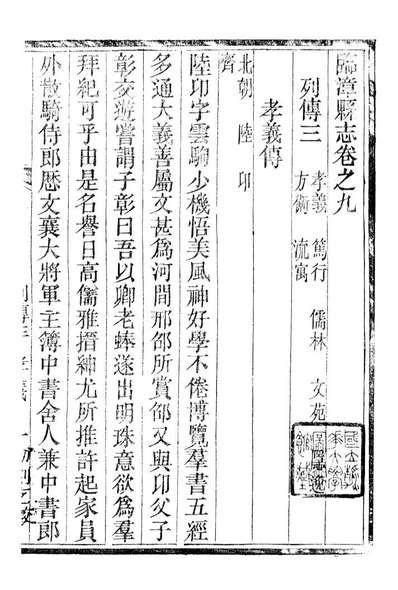 臨漳縣志卷之九
列傳三 孝義 篤行 儒林 文苑
方術 流寓
孝義傳
北朝 陸卬
齊
陸卬字雲駒少機悟美風神好學不倦博覽羣書五經
多通大義善屬文甚為河間邢邵所賞邵又與卬父子
彰交遊嘗謂子彰曰吾以卿老蚌遂出明珠意欲為羣
拜紀可乎由是名譽日高儒雅搢紳尤所推許起家員
外散騎侍郎歷文襄大將軍主簿中書舍人兼中書郎